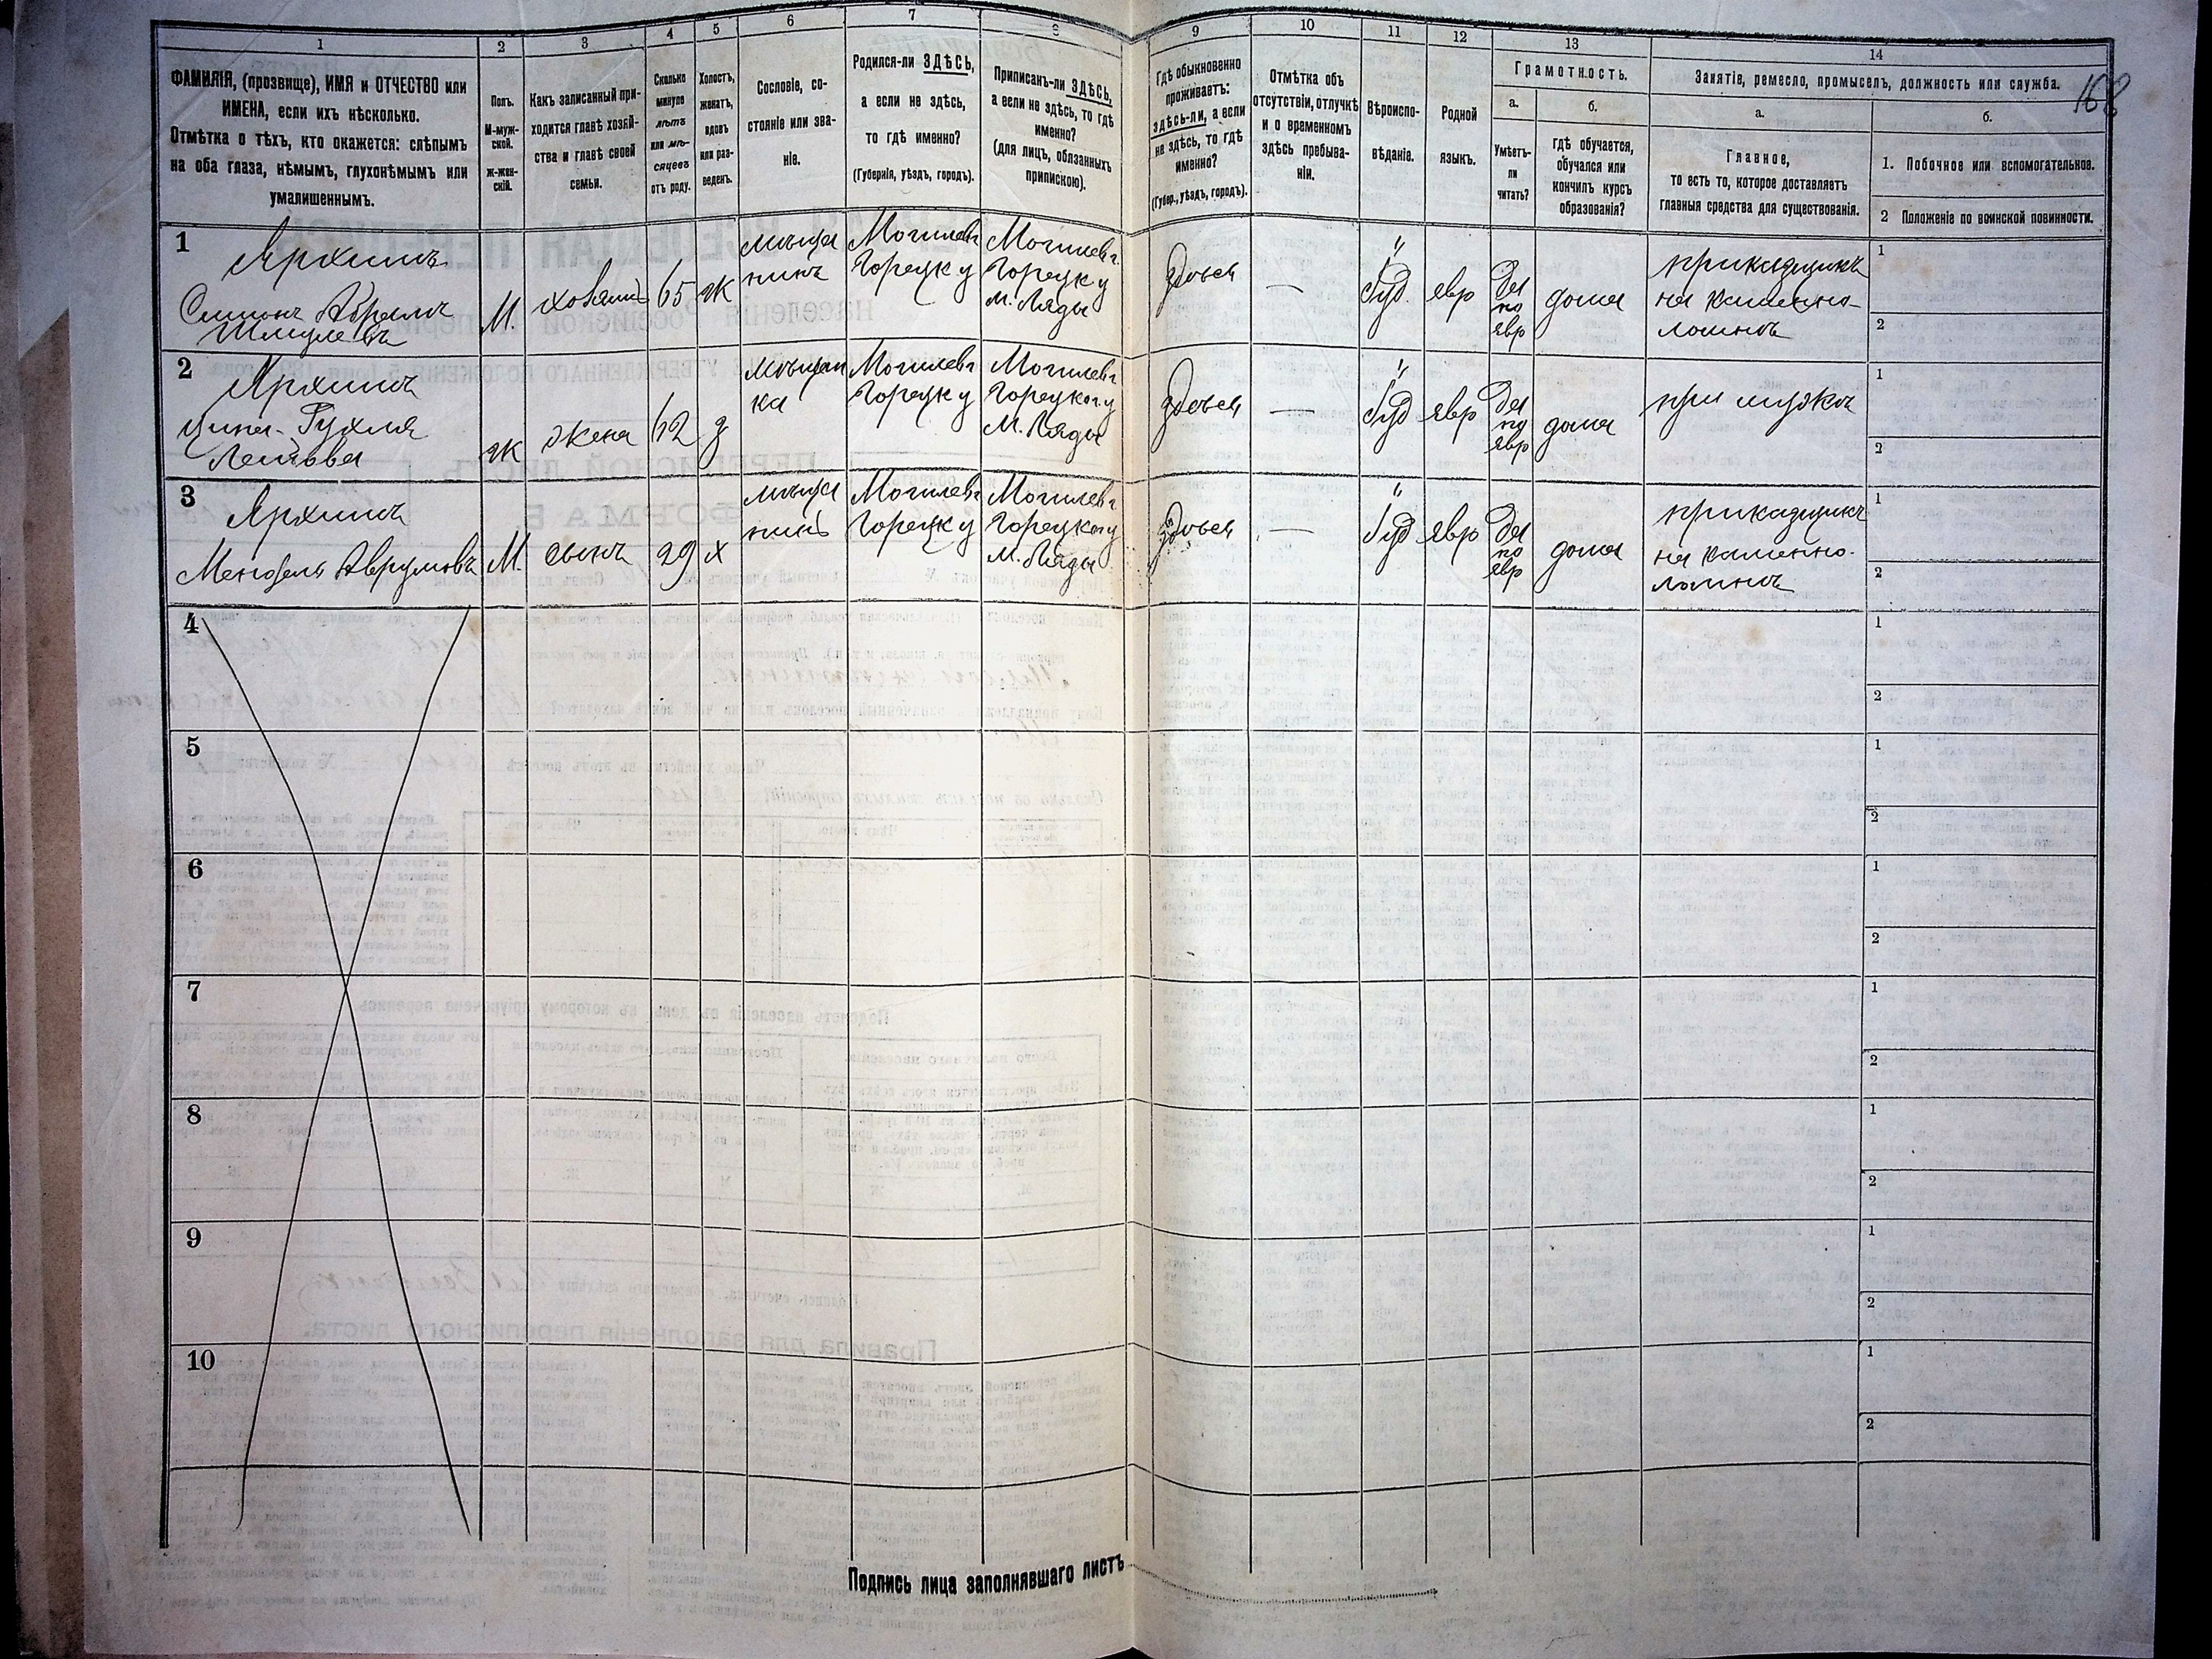 168
1
2
3
4
5
6
7
8
9
10
11
12
13
14
ФАМИЛІЯ, (прозвище), ИМЯ и ОТЧЕСТВО или
ИМЕНА, если ихъ нѣсколько.
Отмѣтка о тѣхъ, кто окажется: слѣпымъ
на оба глаза, нѣмымъ, глухонѣмымъ или
умалишеннымъ.
Полъ.
М-муж-
ской.
ж-жен-
скій.
Какъ записанный при-
ходится главѣ хозяй-
ства и главѣ своей
семьи.
Сколько
минуло
лѣтъ
или мѣ-
сяцевъ
отъ роду.
Холостъ,
женатъ,
вдовъ
или раз-
веденъ.
Сословіе, со-
стояніе или зва-
ніе.
Родился-ли ЗДѢСЬ,
а если не здѣсь,
то гдѣ именно?
(Губернія, уѣздъ, городъ).
Приписанъ-ли ЗДѢСЬ,
а если не здѣсь, то гдѣ
именно?
(для лицъ, обязанныхъ
припискою).
Гдѣ обыкновенно
проживаетъ:
здѣсь-ли, а если
не здѣсь, то гдѣ
именно?
(Губер., уѣздъ, городъ).
Отмѣтка объ
отсутствіи, отлучкѣ
и о временномъ
здѣсь пребыва-
ніи.
Вѣроиспо-
вѣданіе.
Родной
языкъ.
Грамотность.
а.
Умѣетъ-
ли
читать?
б.
гдѣ обучается,
обучался или
кончилъ курсъ
образованія?
Занятіе, ремесло, промыселъ, должность или служба.
а.
Главное,
то есть то, которое доставляетъ
главныя средства для существованія.
б.
1. Побочное или вспомогательное.
2 Положеніе по воинской повинности.
1
Архинъ
Абрамъ
М.
хозяинъ
65
ж
мѣща
нинъ
Могилевг
Горецк у
Могилевг.
Горецк у
м. Ляды
здѣсь
—
Іуд.
евр
Да
по
евр
дома
прикащикъ
на каменно-
ломнѣ
1
2
2
Архинъ
ж
жена
62
з
мѣщан
ка
Могилевг
Горецк у
Могилевг
Горецког у
М. Ляды
здѣсь
—
Іуд
евр
Да
по
евр
дома
при мужѣ
1
2
3
Архинъ
Мендель Аврумовъ
М.
сынъ
29
х
мѣща
нинъ
Могилевг
Горецк у
Могилевг
Горецког у
м. Ляды
здѣсь
—
Іуд
евр
Да
по
евр
дома
прикащикъ
на каменно-
ломнѣ
1
2
4
1
2
5
1
2
6
1
2
7
1
2
8
1
2
9
1
2
10
1
2
Подпись лица заполнявшаго листъ